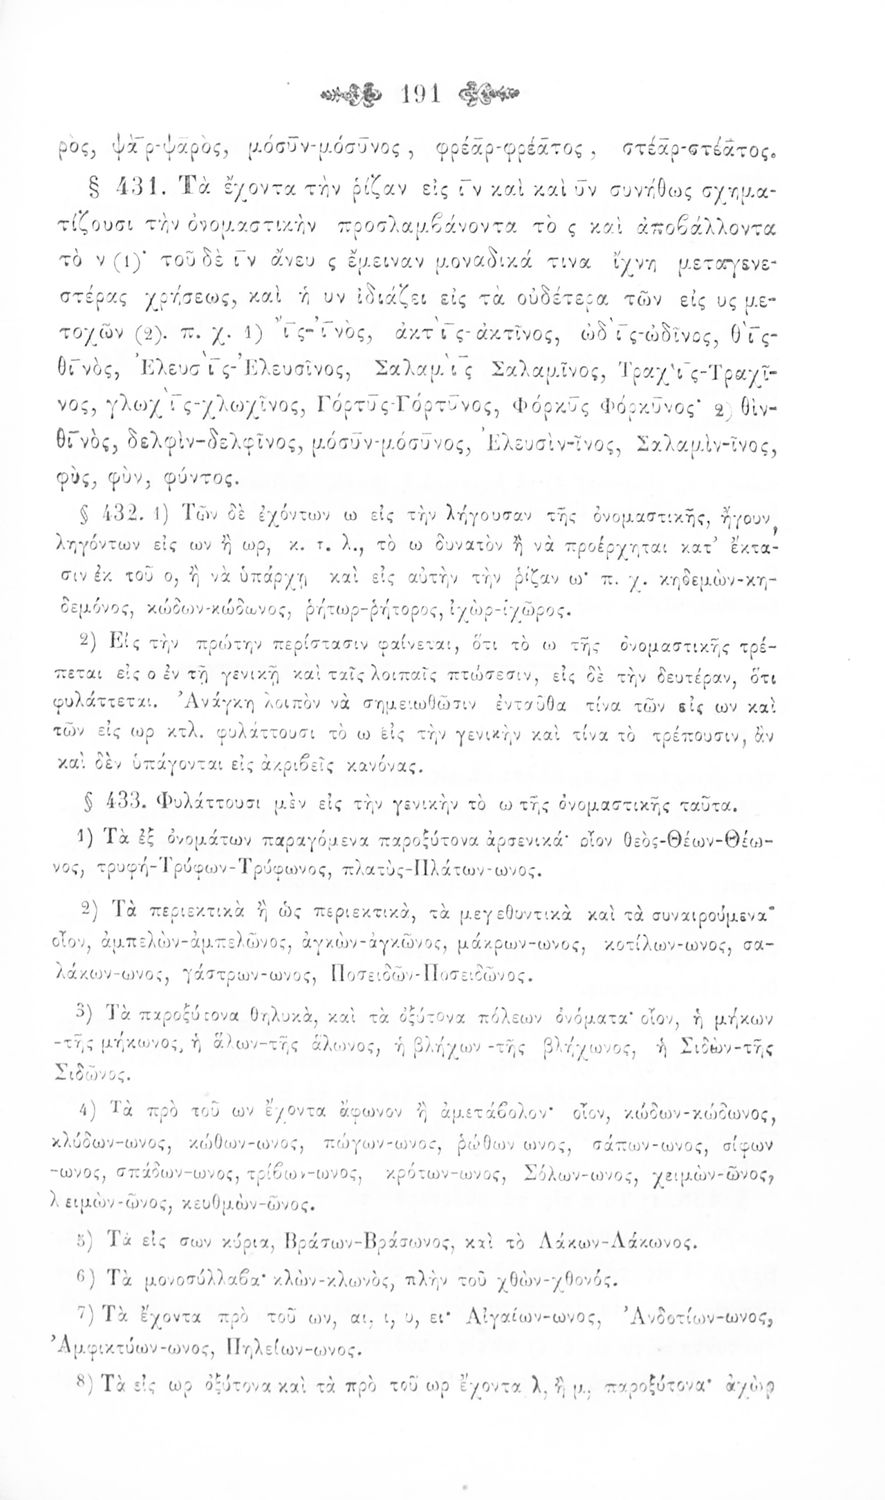 191
ρὸς, ψᾱ̀ρ-ψαρὸς, μόσῡν-μόσῡνος, φρέᾱρ-φρέᾱτος, στέᾱρ-στέᾱτος.
§ 431. Τὰ ἔχοντα τὴν ῥίζαν εἰς ῑν καὶ καὶ ῡν συνήθως σχημα-
τίζουσι τὴν ὀνομαστικὴν προσλαμβάνοντα τὸ ς καὶ ἀποβάλλοντα
τὸ ν (1)· τοῦ δὲ ῑν ἄνευ ς ἔμειναν μοναδικά τινα ἴχνη μεταγενε-
στέρας χρήσεως, καὶ ἡ υν ἰδιάζει εἰς τὰ οὐδέτερα τῶν εἰς υς με-
τοχῶν (2). π. χ. 1) ῑ̓̀ς-ῑ̓νὸς, ἀκτῑ̀ς-ἀκτῖνος, ὠδῑ̀ς-ὠδῖνος, θῑ̀ς-
θῑνὸς, Ἐλευσῑ̀ς-Ἐλευσῖνος, Σαλαμῑ̀ς Σαλαμῖνος, Τραχῑ̀ς-Τραχῖ-
νος, γλωχῑ̀ς-χλωχῖνος, Γόρτῡς-Γόρτῡνος, Φόρκῡς Φόρκῡνος· 2) θὶν-
θῑνὸς, δελφὶν-δελφῖνος, μόσυν-μόσῡνος, Ἐλευσὶν-ῖνος, Σαλαμὶν-ῖνος,
φὺς, φὺν, φύντος.
§ 432. 1) Τῶν δὲ ἐχόντων ω εἰς τὴν λήγουσαν τῆς ὀνομαστικῆς, ἤγουν,
ληγόντων εἰς ων ἢ ωρ, κ. τ. λ., τὸ ω δυνατὸν ἢ νὰ προέρχηται κατ' ἔκτα-
σιν ἐκ τοῦ ο, ἢ νὰ ὑπάρχῃ καὶ εἰς αὐτὴν τὴν ῥίζαν ω· π. χ. κηδεμὼν-κη-
δεμόνος, κώδων-κώδωνος, ῥήτωρ-ῥήτορος, ἰχὼρ-ἰχῶρος.
2) Εἰς τὴν πρώτην περίστασιν φαίνεται, ὅτι τὸ ω τῆς ὀνομαστικῆς τρέ-
πεται εἰς ο ἐν τῇ γενικῇ καὶ ταῖς λοιπαῖς πτώσεσιν, εἰς δὲ τὴν δευτέραν, ὅτι
φυλάττεται. Ἀνάγκη λοιπὸν νὰ σημειωθῶσιν ἐνταῦθα τίνα τῶν εἰς ων καὶ
τῶν εἰς ωρ κτλ. φυλάττουσι τὸ ω εἰς τὴν γενικὴν καὶ τίνα τὸ τρέπουσιν, ἂν
καὶ δὲν ὑπάγονται εἰς ἀκριβεῖς κανόνας.
§ 433. Φυλάττουσι μὲν εἰς τὴν γενικὴν τὸ ω τῆς ὀνομαστικῆς ταῦτα.
1) Τὰ ἐξ ὀνομάτων παραγόμενα παροξύτονα ἀρσενικά· οἷον θεὸς-Θέων-Θέω-
νος, τρυφή-Τρύφων-Τρύφωνος, πλατὺς-Πλάτων-ωνος.
2) Τὰ περιεκτικὰ ἢ ὡς περιεκτικὰ, τὰ μεγεθυντικὰ καὶ τὰ συναιρούμενα·
οἷον, ἀμπελὼν-ἀμπελῶνος, ἀγκὼν-ἀγκῶνος, μάκρων-ωνος, κοτίλων-ωνος, σα-
λάκων-ωνος, γάστρων-ωνος, Ποσειδῶν-Ποσειδῶνος.
3) Τὰ παροξύτονα θηλυκὰ, καὶ τὰ ὀξύτονα πόλεων ὀνόματα· οἷον, ἡ μήκων
-τῆς μήκωνος, ἡ ἅλων-τῆς ἅλωνος, ἡ βλήχων-τῆς βλήχωνος, ἡ Σιδὼν-τῆς
Σιδῶνος.
4) Τὰ πρὸ τοῦ ων ἔχοντα ἄφωνον ἢ ἀμετάβολον· οἷον, κώδων-κώδωνος,
κλύδων-ωνος, κώθων-ωνος, πώγων-ωνος, ῥώθων ωνος, σάπων-ωνος, σίφων
-ωνος, σπάδων-ωνος, τρίβων-ωνος, κρότων-ωνος, Σόλων-ωνος, χειμὼν-ῶνος,
λειμὼν-ῶνος, κευθμὼν-ῶνος.
5) Τὰ εἰς σων κύρια, Βράσων-Βράσωνος, καὶ τὸ Λάκων-Λάκωνος.
6) Τὰ μονοσύλλαβα· κλὼν-κλωνὸς, πλὴν τοῦ χθὼν-χθονός.
7) Τὰ ἔχοντα πρὸ τοῦ ων, αι, ι, υ, ει· Αἰγαίων-ωνος, Ἀνδοτίων-ωνος,
Ἀμφικτύων-ωνος, Πηλείων-ωνος.
8) Τὰ εἰς ωρ ὀξύτονα καὶ τὰ πρὸ τοῦ ωρ ἔχοντα λ, ἢ μ, παροξύτονα· ἀχὼρ